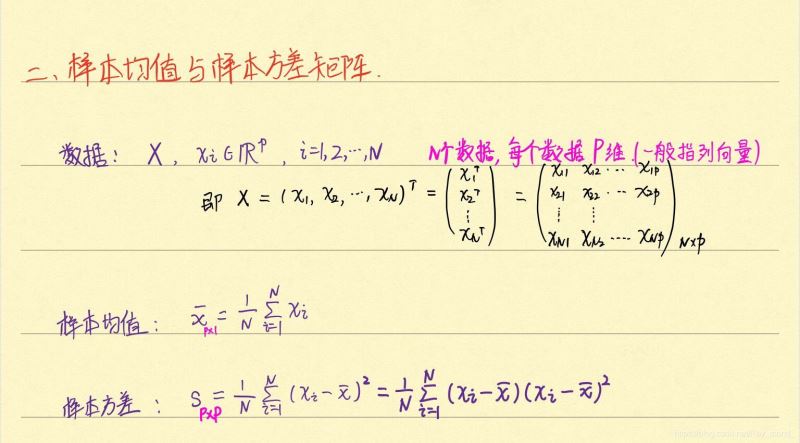 二、样本均值与样本方差矩阵.
数据: X , xᵢ∈ℝᵖ , i=1,2,…,N N个数据,每个数据P维.(一般指列向量)
即 X = (x₁, x₂, …, x_N)ᵀ = (x₁ᵀ x₂ᵀ ⋮ x_Nᵀ) = (x₁₁ x₁₂ … x₁ₚ x₂₁ x₂₂ … x₂ₚ ⋮ ⋮ x_N₁ x_N₂ … x_Nₚ)_N×p
样本均值: x̄_p×1 = 1/N ∑_{i=1}^{N} xᵢ
样本方差: S_p×p = 1/N ∑_{i=1}^{N} (xᵢ-x̄)² = 1/N ∑_{i=1}^{N} (xᵢ-x̄)(xᵢ-x̄)²